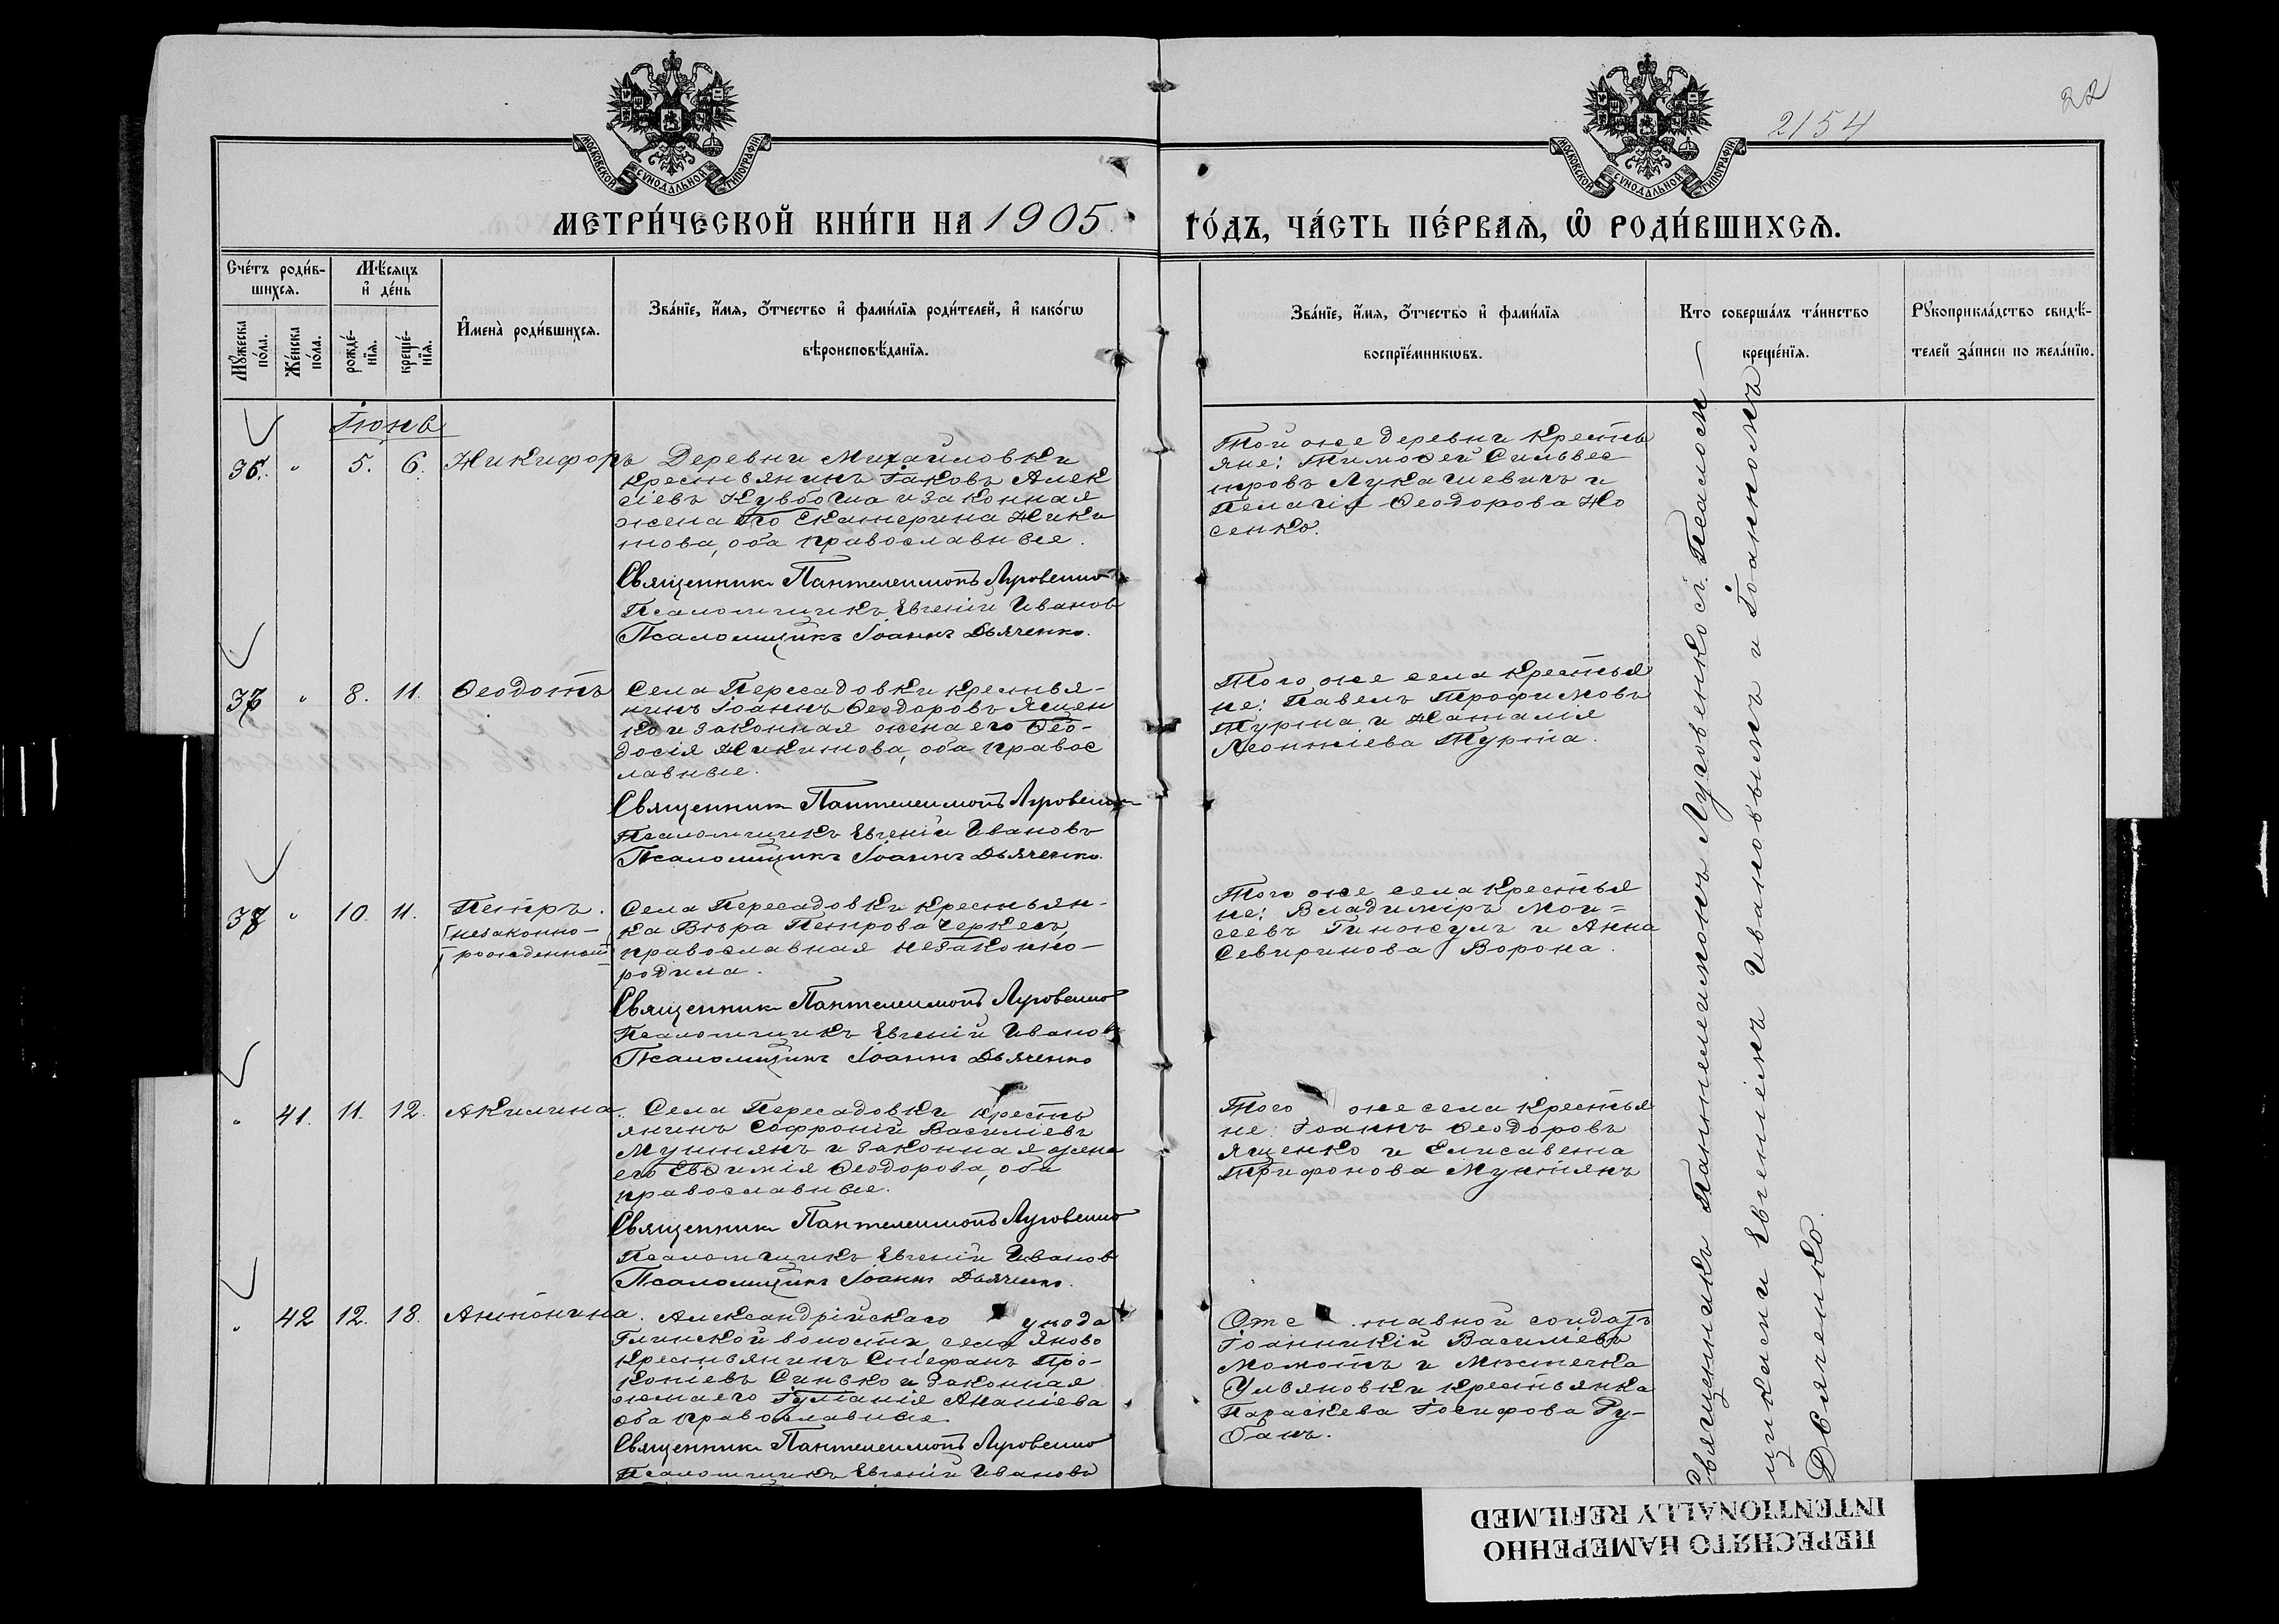 22
2154
МОСКОВСКОЙ СѴНОДАЛЬНОЙ ТИПОГРАФІИ
МОСКОВСКОЙ СѴНОДАЛЬНОЙ ТИПОГРАФІИ
МЕТРИ́ЧЕСКОЙ КНИ́ГИ НА 1905 ГО́ДЪ, ЧА́СТЬ ПЕ́РВАѦ, Ѡ҆ РОДИ́ВШИХСѦ.
Сче́тъ роди́в-
шихсѧ.
Мꙋ́жеска по́ла.
Же́нска по́ла.
Мѣ́сяцъ
и҆ де́нь
рожде́-
нїѧ.
креще́-
нїѧ.
И҆мена̀ роди́вшихсѧ.
Зва́нїе, и҆́мѧ, ѻ҆́тчество и҆ фами́лїѧ роди́телей, и҆ како́гѡ
вѣроисповѣ́данїѧ.
Зва́нїе, и҆́мѧ, ѻ҆́тчество и҆ фами́лїѧ
воспрїе́мникѡвъ.
Кто соверша́лъ та́инство
креще́нїѧ.
Рꙋкоприкла́дство свидѣ́-
телей за́писи по жела́нїю.
Іюнь
36. " 5. 6. Никифоръ
Деревни Михайловки
крестьянинъ Іаковъ Алек
сіевъ и законная
жена его Екатерина Ники
това, оба православные.
Священникъ Пантелеимонъ Луговенко
Псаломщикъ Евгеній Ивановъ
Псаломщикъ Іоаннъ Дьяченко.
Той же деревни кресть
яне: Тимоѳей Сильвес
тровъ Лукашевичъ и
Пелагія Ѳеодорова Но
сенко.
37 " 8. 11. Ѳеодотъ
Села Пересадовки крестья-
нинъ Іоаннъ Ѳеодоровъ Ящен
ко и законная жена его Ѳео-
досія Никитова, оба правос
лавные.
Священникъ Пантелеимонъ Луговенко
Псаломщикъ Евгеній Ивановъ
Псаломщикъ Іоаннъ Дьяченко.
Того же села крестья
не: Павелъ Трофимовъ
Турта и Наталія
Леонтіева Турта.
38 " 10. 11. Петръ.
незаконно-
рожденный
Села Пересадовки крестьян-
ка Вѣра Петрова Черкесъ,
православная незаконно-
родила.
Священникъ Пантелеимонъ Луговенко
Псаломщикъ Евгеній Ивановъ
Псаломщикъ Іоаннъ Дьяченко
Того же села крестья
не: Владиміръ Мои=
сеевъ Гинжулъ и Анна
Севиринова Ворона.
" 41. 11. 12. Акилина.
Села Пересадовки кресть
янинъ Софроній Василіевъ
Мунтянъ и законная жена
его Евѳимія Ѳеодорова, оба
православные.
Священникъ Пантелеимонъ Луговенко
Псаломщикъ Евгеній Ивановъ
Псаломщикъ Іоаннъ Дьяченко.
Того же села крестья
не: Іоаннъ Ѳеодоровъ
Ященко и Елисавета
Трифонова Мунтянъ
" 42 12. 18. Антонина.
Александрійскаго уѣзда
Глинской волости, села Яново
крестьянинъ Стефанъ Про-
копіевъ Синько и законная
жена его Іуліанія Ананіева
оба православные.
Священникъ Пантелеимонъ Луговенко
Псаломщикъ Евгеній Ивановъ
Отставной солдатъ
Іоанникій Василіевъ
Момотъ и Мѣстечка
Ульяновки крестьянка
Параскева Іосифова Ру-
банъ.
Священникъ Пантелеимонъ Луговенко съ Псалом-
щиками Евгеніемъ Ивановымъ и Іоанномъ
Дьяченко.
ПЕРЕСНЯТО НАМЕРЕННО
INTENTIONALLY REFILMED